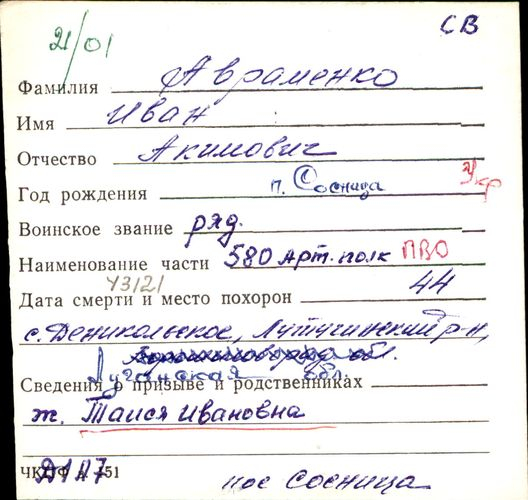 21/01
СВ
Фамилия Авраменко
Имя Иван
Отчество Акимович
Год рождения п. Сосница Укр
Воинское звание ряд.
Наименование части 580 Арт. полк ПВО
43121
Дата смерти и место похорон 44
с. Деникольское, Лутугинский р-н,
обл.
Луганская обл.
Сведения о призыве и родственниках
ж. Таися Ивановна
151
пос Сосница